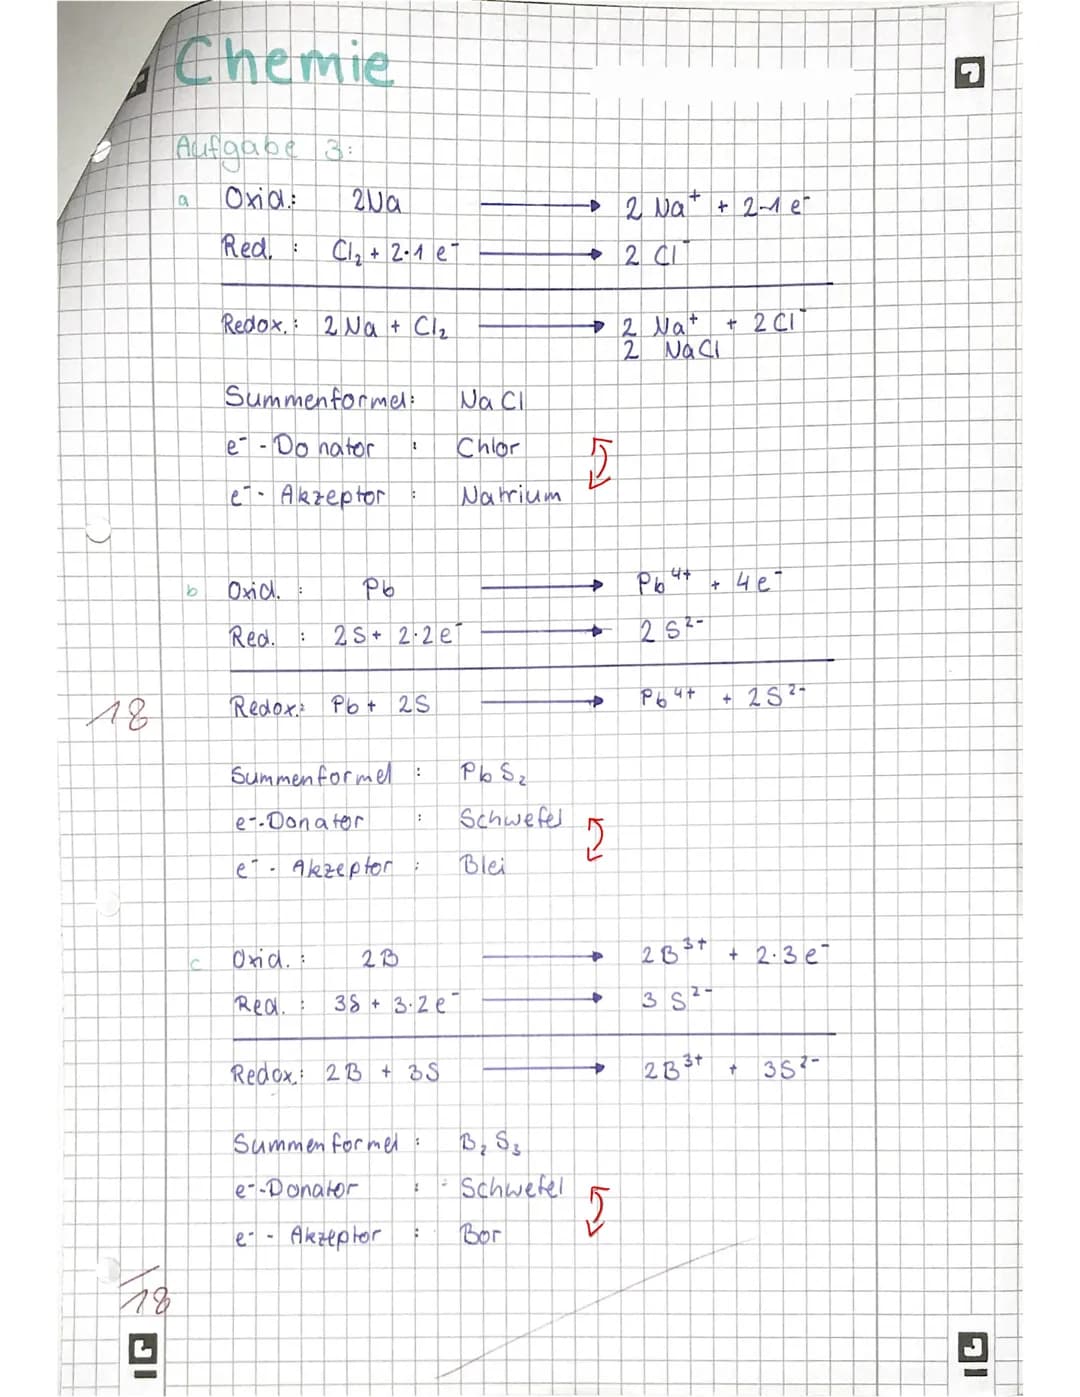 Chemie
Aufgabe 3:
a Oxid.: 2Na → 2 Na⁺ + 2·1 e⁻
Red. : Cl₂ + 2·1 e⁻ → 2 Cl⁻
Redox.: 2 Na + Cl₂ → 2 Na⁺ + 2 Cl⁻
2 NaCl
Summenformel: NaCl
e⁻-Donator : Chlor
e⁻-Akzeptor : Natrium
b Oxid. : Pb → Pb⁴⁺ + 4e⁻
Red. : 2S + 2·2e⁻ → 2 S²⁻
18
Redox.: Pb + 2S → Pb⁴⁺ + 2S²⁻
Summenformel : PbS₂
e⁻-Donator : Schwefel
e⁻-Akzeptor : Blei
c Oxid. : 2B → 2B³⁺ + 2·3e⁻
Red. : 3S + 3·2e⁻ → 3 S²⁻
Redox.: 2B + 3S → 2B³⁺ + 3S²⁻
Summenformel : B₂S₃
e⁻-Donator : Schwefel
e⁻-Akzeptor : Bor
/18